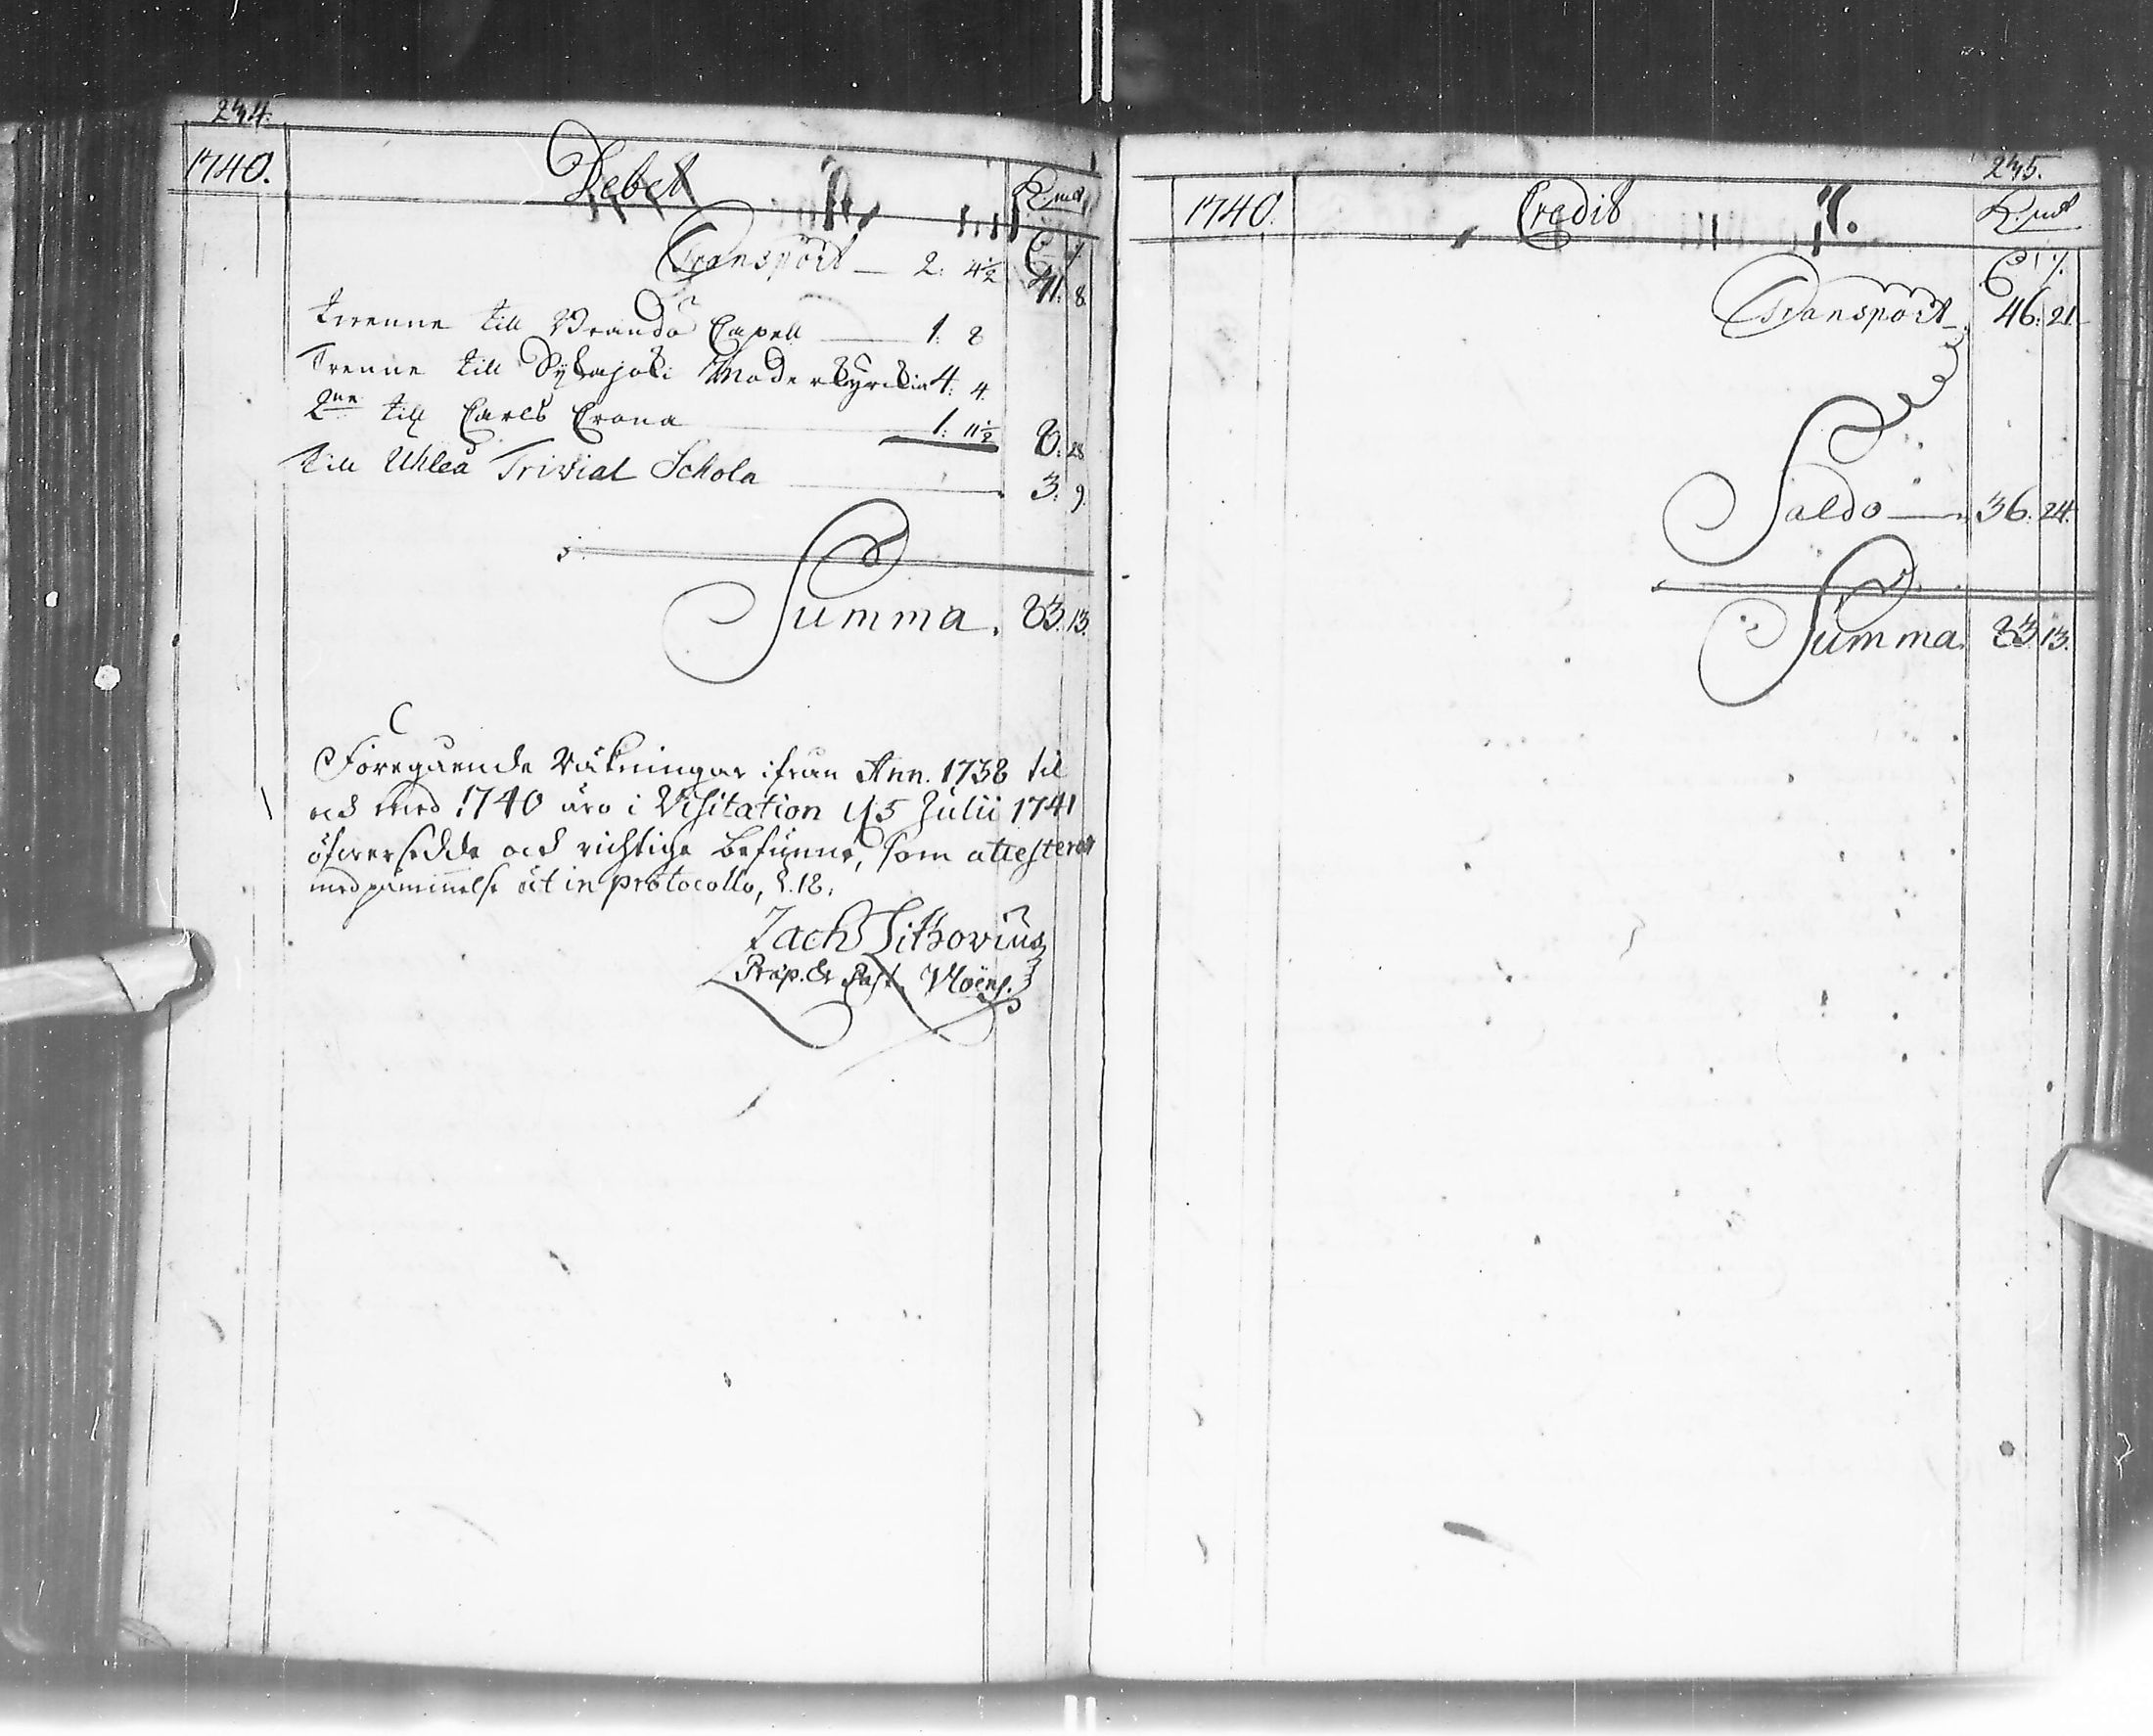 234.
1740. Debet K. mt
Transport — 2: 4½ 71: 8
trenne till Brando Capell — 1: 8
Trenne till Sykajoki Moderkyrkia 4: 4
2ne till Carls Crona 1: 11½ 8: 28
till Uhleå Trivial Schola — 3: 9
Summa. 83. 13.
Föregående Räkningar ifrån Ann. 1738 til
och med 1740 äro i Visitation d. 5 Julii 1741
öfwersedde och richtige befunne, som attesterar
med påminnelse ut in protocollo, §. 18.
Zach Lithovius
Præp. & Past. Uloëns.
235.
1740. Credit K. mt
Transport 46: 21
Saldo — 36. 24.
Summa 83 13.